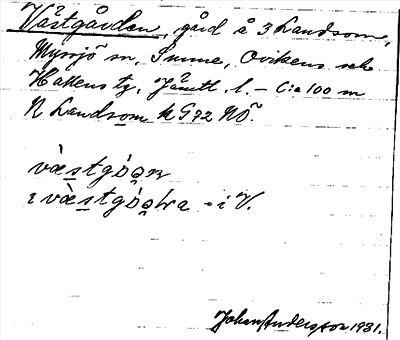 Västgården, gård å 3 Landsom,
Myssjö sn, Sunne, Ovikens och
Hallens tg, Jämtl. l. – C:a 100 m
N Landsom k G 72 NÖ.
västgóǝn
i västgóǝɫra - i V.
Johan Andersson 1931.